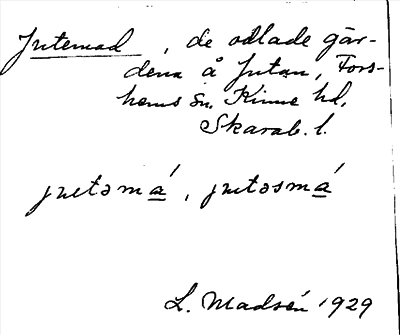 Jutemad, de odlade går-
dena å Jutan, Fors-
hems sn, Kinne hd,
Skarab. l.
jutəmá, jutəsmá
L. Madsén 1929